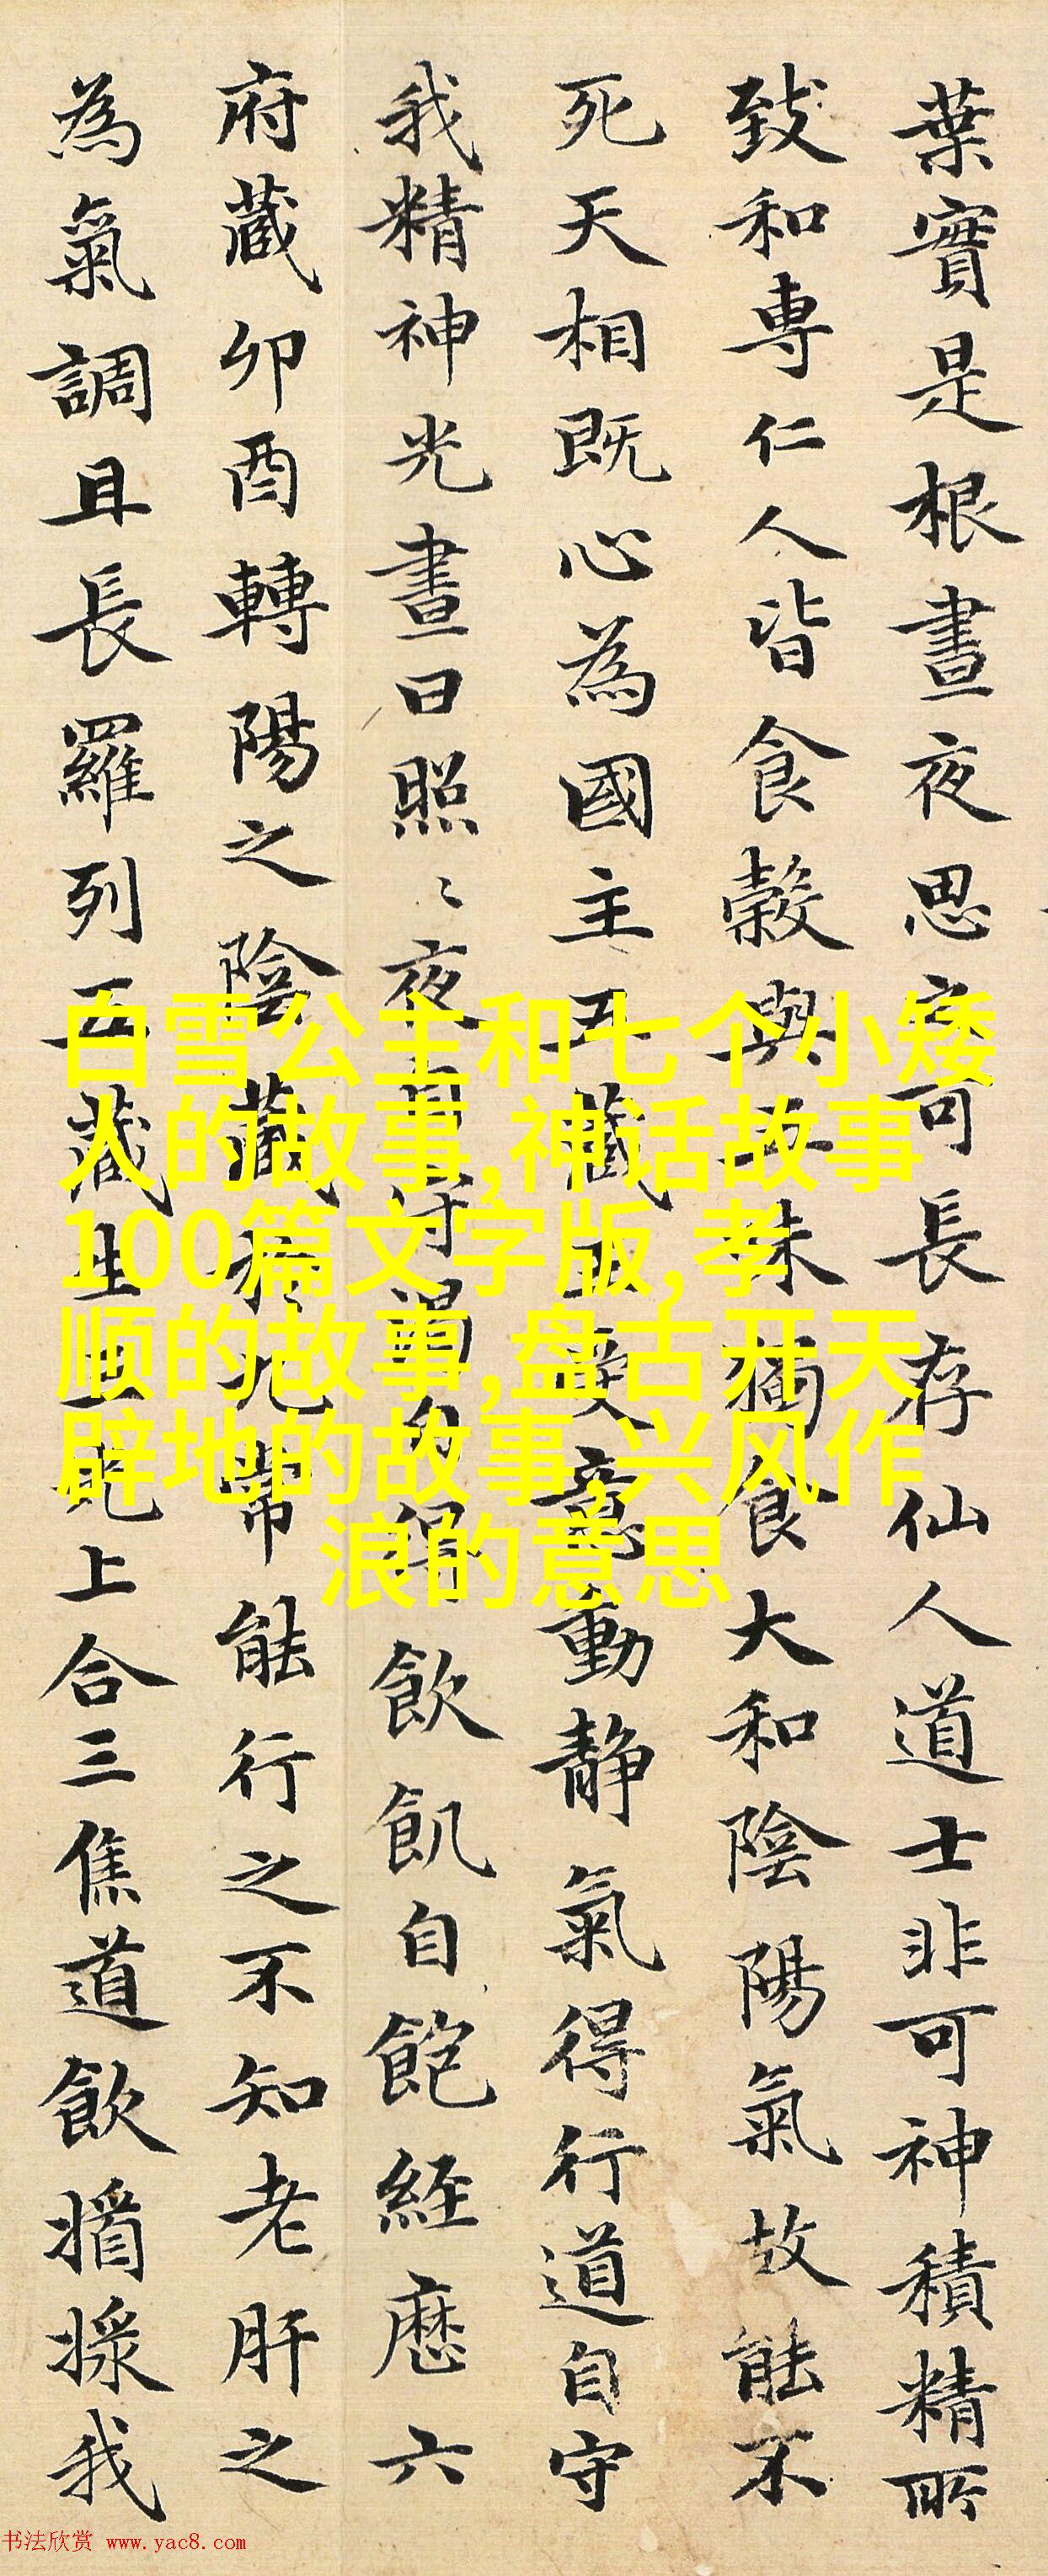 葉實是根晝夜思之可長存仙人道士非可神積精所
致和專仁人皆食穀與五味獨食大和陰陽氣故能不
死天相既心為國主五藏王受意動靜氣得行道自守
我精神光晝日照〻夜自守渴自得飲飢自飽經歷六
府藏卯酉轉陽之陰藏於九常能行之不知老肝之
為氣調且長羅列五藏生三光上合三焦道飲漿我
白雪公主和七个小矮
人的故事,神话故事
100篇文字版,孝
顺的故事,盘古开天
辟地的故事,兴风作
浪的意思
书法欣赏 www.yac8.com